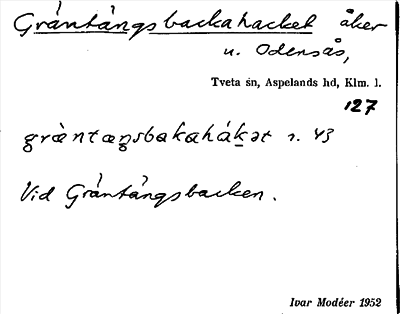 Gràntángsbackahacket åker
u. Odensås,
Tveta sn, Aspelands hd, Klm. l.
127
gràntaŋsbakahákət r. 43
Vid Gràntángsbacken.
Ivar Modéer 1952